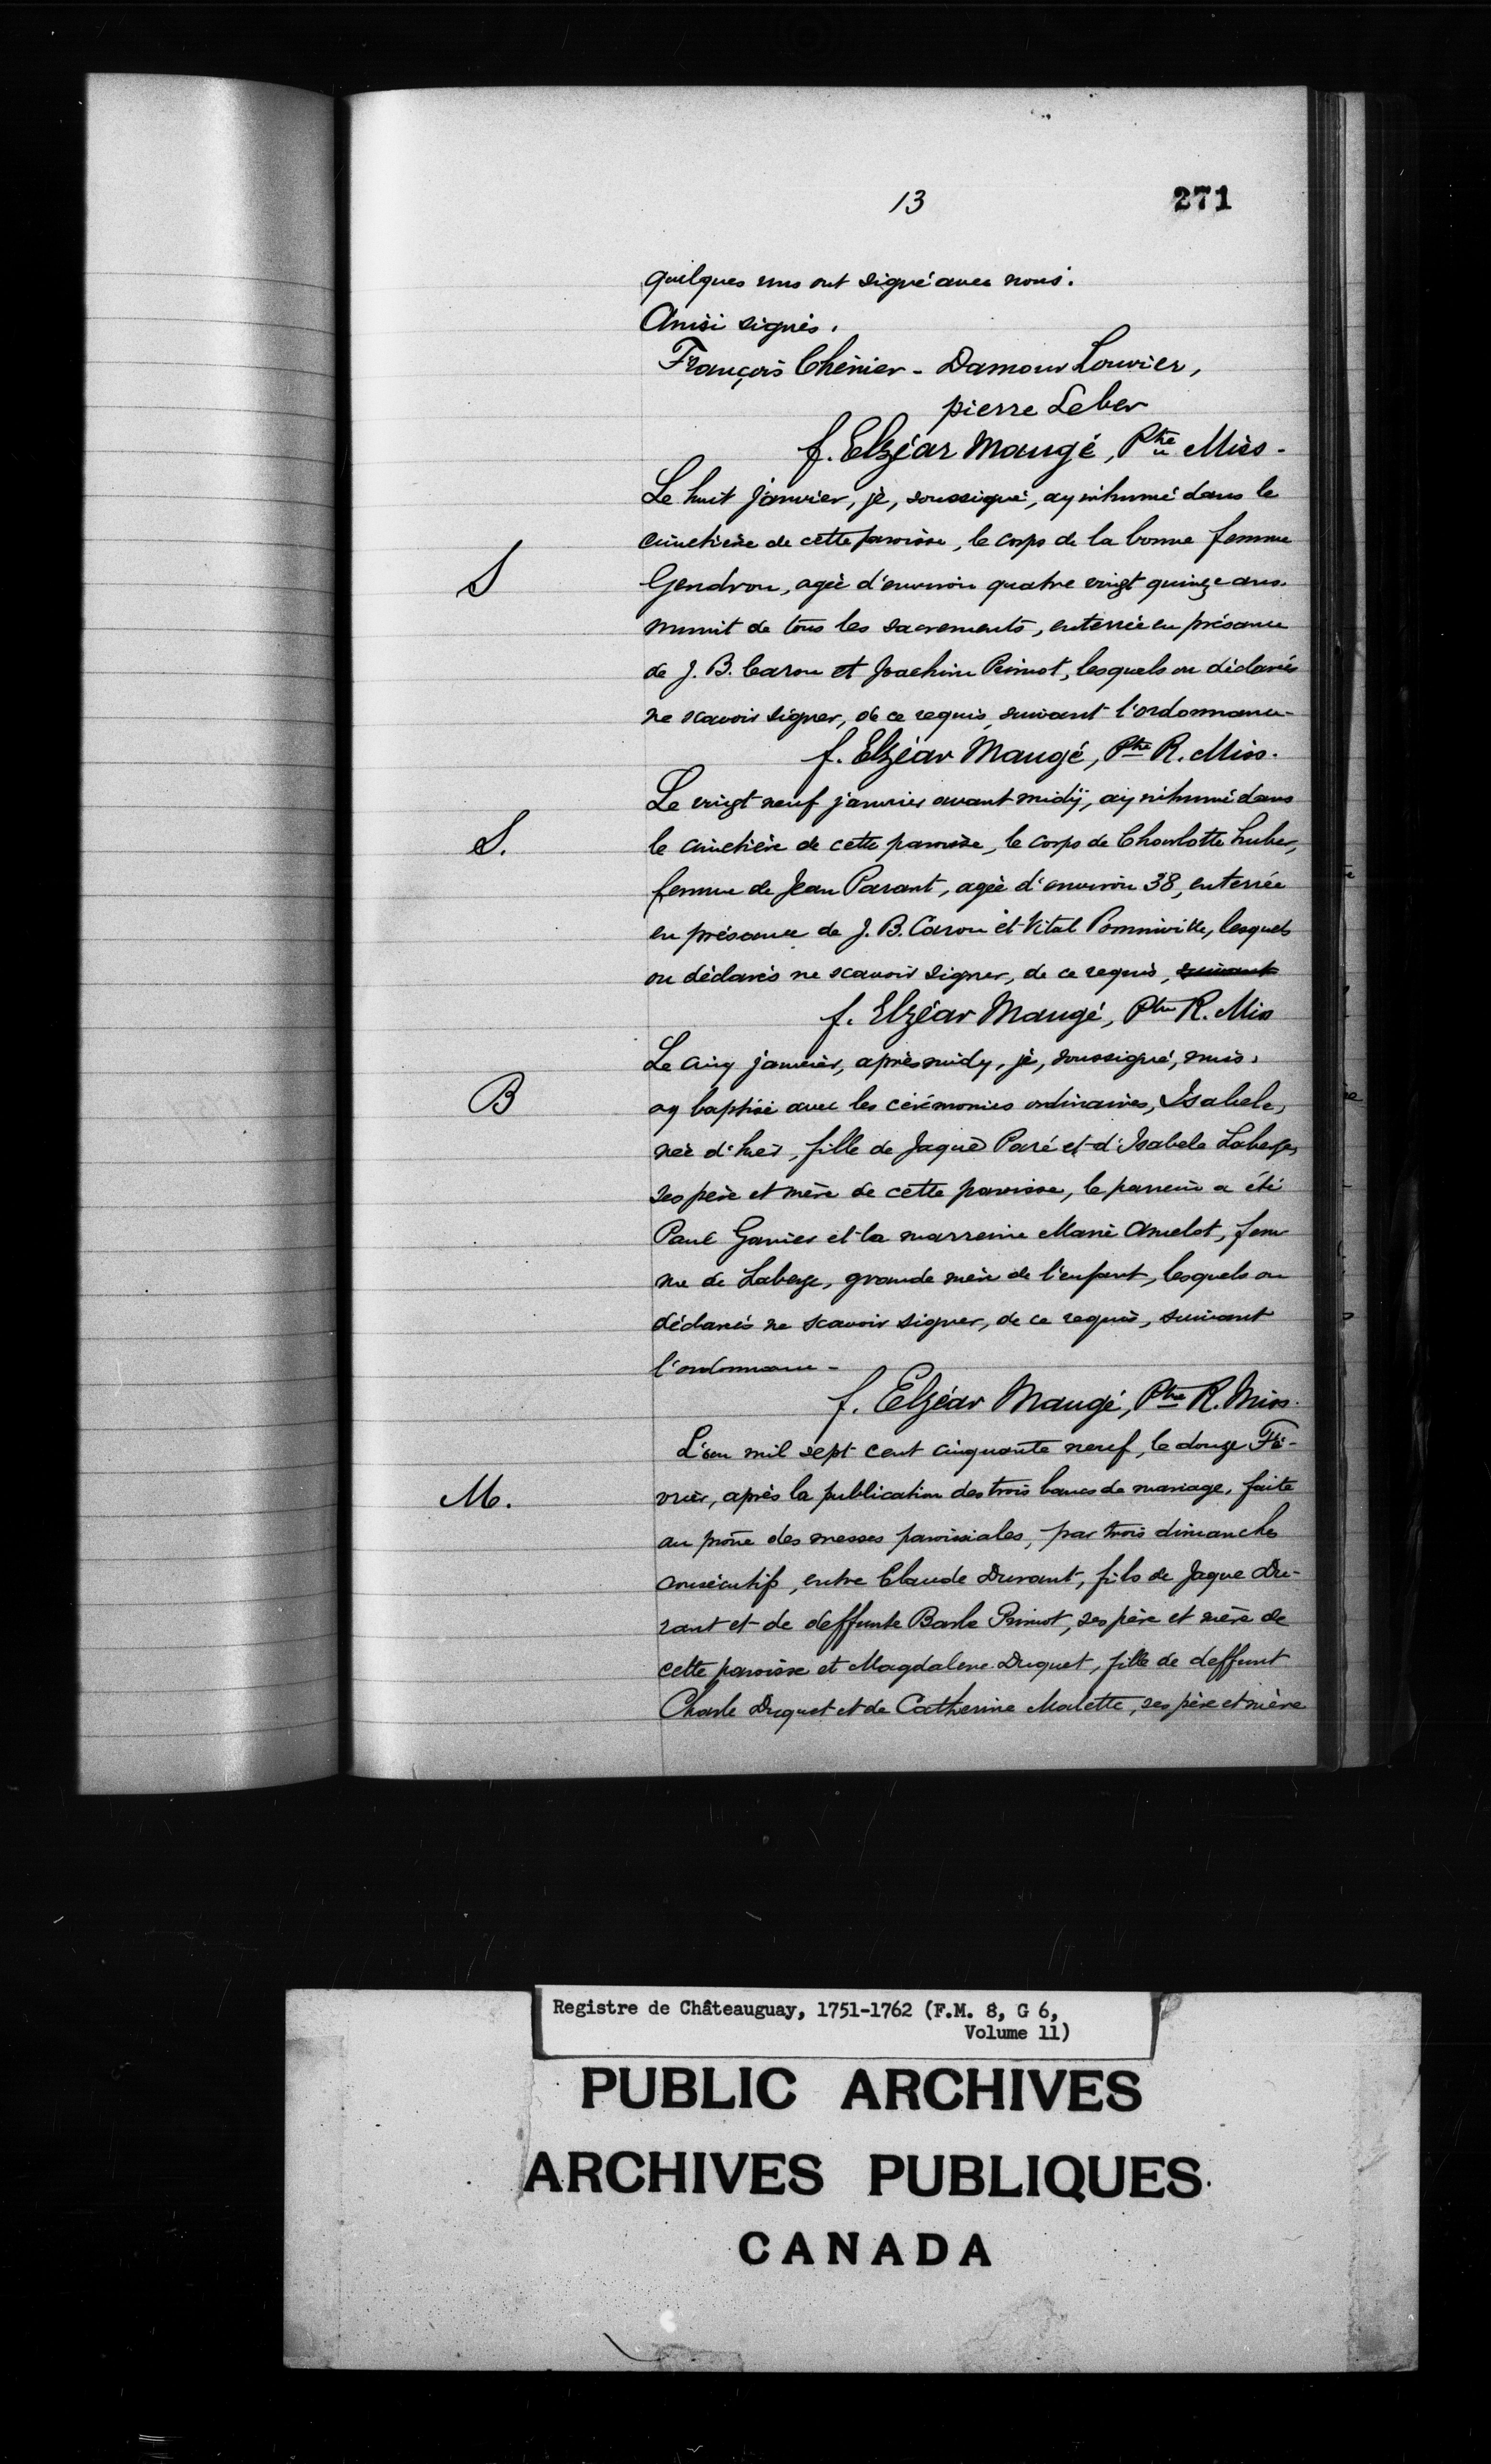 13
271
quelques uns ont signé avec nous.
Ainsi signés.
François Chénier - Damour Louvier,
pierre Leber
f. Elzéar Maugé, Ptre Miss.
Le huit janvier, je, soussigné, ay inhumé dans le
S
cimetière de cette paroisse, le corps de la bonne femme
Gendron, agée d'environ quatre vingt quinze ans.
munit de tous les sacrements, enterrée en présance
de J. B. Caron et Joachim Primot, lesquels on déclarés
ne scavoir signer, de ce requis suivant l'ordonnance-
f. Elzéar Maugé, Ptre R. Miss.
Le vingt neuf janvier avant midy, ay inhumé dans
S.
le cimetière de cette paroisse, le corps de Charlotte huber,
femme de Jean Parant, agée d'environ 38, enterrée
en présance de J. B. Caron et Vital Pominville, lesquels
on déclarés ne scavoir signer, de ce requis, suivant
f. Elzéar Maugé, Ptre R. Miss
Le cinq janvier, après midy, je, soussigné, miss.
B
ay baptisé avec les cérémonies ordinaires, Isabele,
née d'hier, fille de Jaque Paré et d'Isabele Laberge,
ses père et mère de cette paroisse, le parrein a été
Paul Ganier et la marreine Marie Amelot, fem-
me de Laberge, grande mère de l'enfant, lesquels on
déclarés ne scavoir signer, de ce requis, suivant
l'ordonnance-
f. Elzéar Maugé, Ptre R. Miss.
L'an mil sept cent cinquante neuf, le douze Fé-
M.
vrier, après la publication des trois bancs de mariage, faite
au prône des messes paroissiales, par trois dimanche
consécutifs, entre Claude Durant, fils de Jaque Du-
rant et de deffunte Barbe Primot, ses père et mère de
cette paroisse et Magdalene Duquet, fille de deffunt
Charle Duquet et de Catherine Malette, ses père et mère
Registre de Châteauguay, 1751-1762 (F.M. 8, G 6,
Volume 11)
PUBLIC ARCHIVES
ARCHIVES PUBLIQUES
CANADA